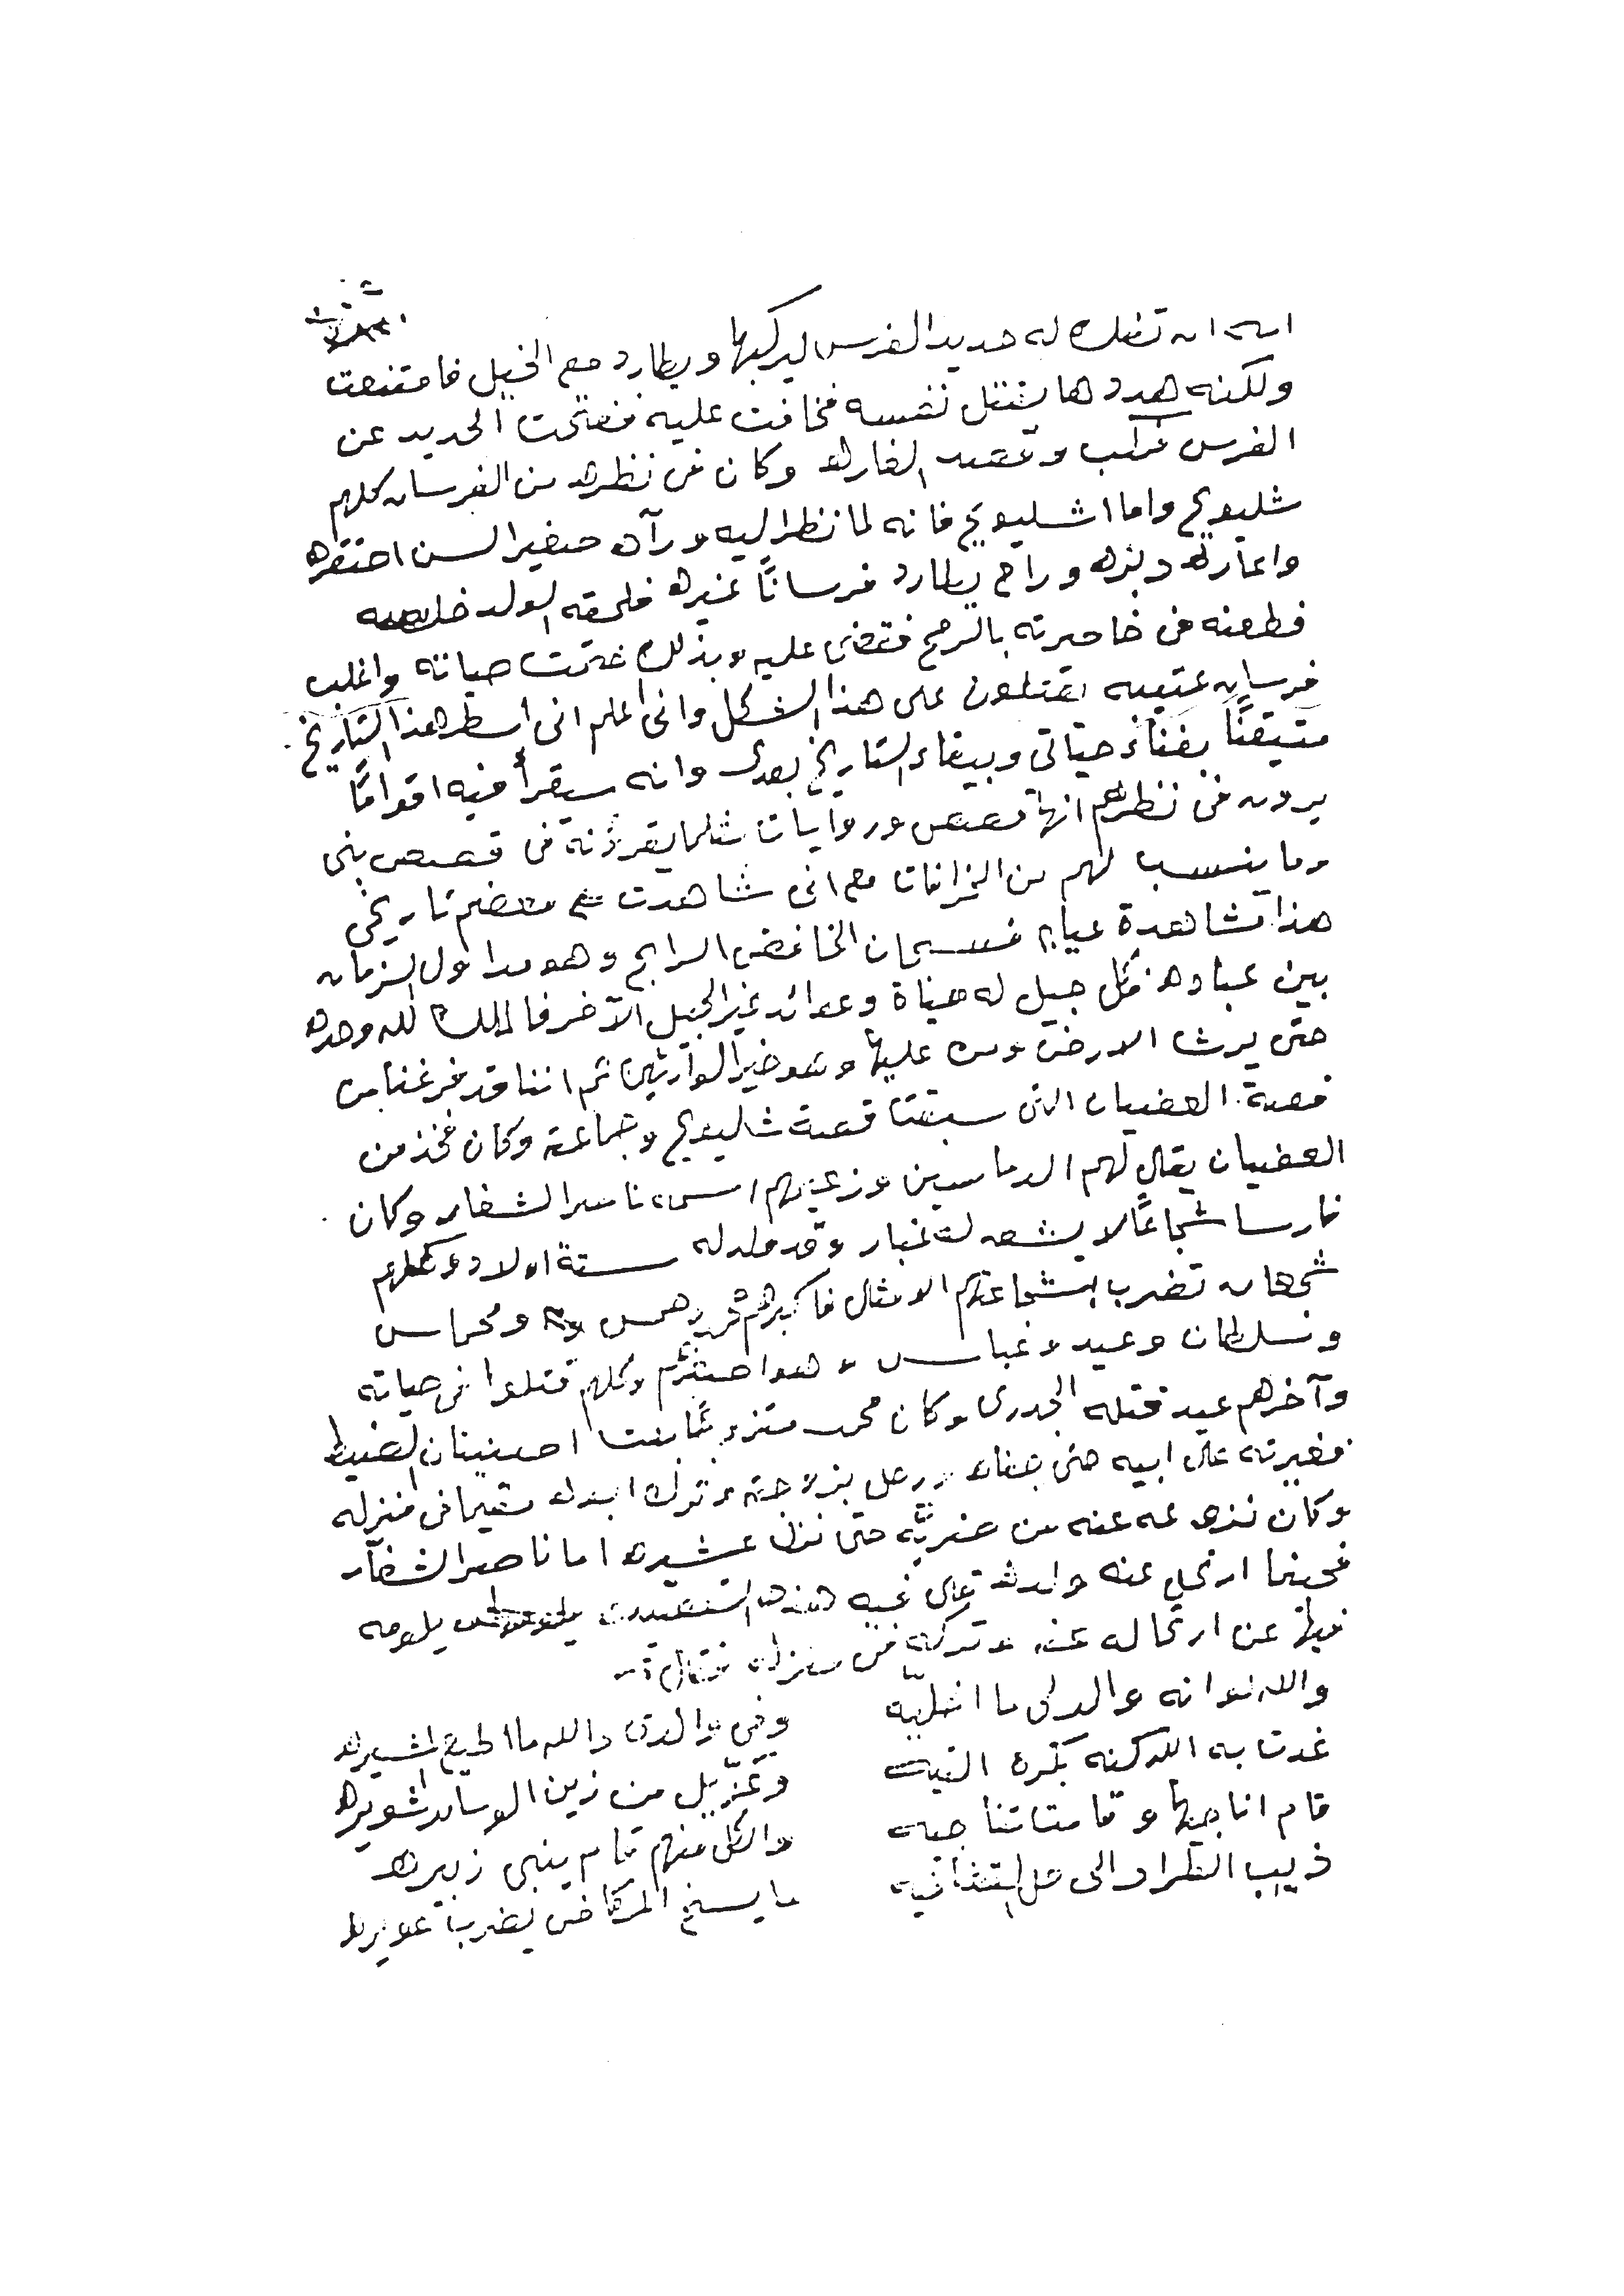 امه ان تفك له حديد الفرس ليركبها ويطارد مع الخيل فامتنعت
ولكنه هددها بقتل نفسه فخافت عليه ففتحت الحديد عن
الفرس فركب وقصد الغاره وكان في نظره من الفرسان كلهم
شليويح واما اشليويح فانه لما نظر اليه ورآه صغير السن احتقره
واعاره وراح يطارد فرساناً غيره فلحقه الولد
فطعنه في خاصرته بالرمح فقضى عليه وبذلك ختمت حياته واغلب
فرسان عتيبه يقتلون على هذا الشكل واني اعلم اني اسطر هذا التاريخ
متيقناً بفناء حياتي وبيقاء التاريخ بعدي وانه سيقرأ فيه اقواماً
يرون في نظرهم انها قصص وروايات مثلما يقرؤنه في قصص بني
وما ينسب لهم من الخرافات مع اني شاهدت معضم تاريخي
هذا مشاهدة عيان فسبحان الخافض الرابع وهو مداول الزمان
بين عباده فكل جيل له حياة وعوائد غير الجيل الآخر فالملك لله وحده
حتى يرث الارض ومن عليها وهو خير الوارثين ثم اننا قد فرغنا من
قصة العضيان التي سبقتا قصة شاليويح وجماعته وكان فخذ من
العضيان يقال لهم الدماسين وزعيمهم اسمه ناصر الشغار وكان
فارسا شجاعاً لا يشق له غبار وقد ولد له ستة اولاد وكلهم
شجعان تضرب بشجاعتهم الامثال فاكبرهم دهمس ومحماس
وسلطان وعيد وغباس وهو اصغرهم وكلهم قتلوا في حياته
وآخرهم عيد قتله الجدري وكان متزوجاً بنت احسنيتان الضيط
فغيرته على ابيه حتى جفاه ورحل بزوجته وترك ابوه مقيما في منزله
وكان نزح عنه من حتى نزل عشيره اما ناصر الشغار
فحينما ارتحل عنه ولده قال فيه هذه القصيدة يلومه
فيها عن ارتحاله عنه وتركه في منزله فقال :-
والله لو انه والدي ما اخليه   وفي والدي والله ما اطيع المشيره
غدت به الدكنه بكرة الثنيه   وغزيل من زين الوسايد اشويره
قام انا جيها وقامت اتناجيه   والكل منهم قام ينبي زبيره
ذيب الطراد الى حل القفافيه   ما يسنع المركاض يضرب عويره